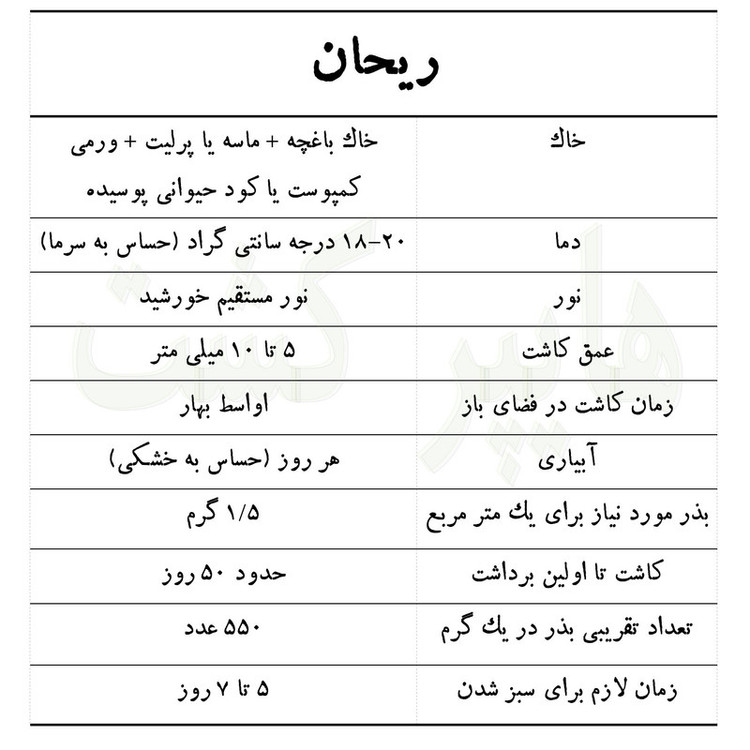 ریحان
خاك
خاك باغچه + ماسه یا پرلیت + ورمی
کمپوست یا کود حیوانی پوسیده
دما
۱۸-۲۰ درجه سانتی گراد (حساس به سرما)
نور
نور مستقیم خورشید
عمق کاشت
۵ تا ۱۰ میلی متر
زمان کاشت در فضای باز
اواسط بهار
آبیاری
هر روز (حساس به خشکی)
بذر مورد نیاز برای یك متر مربع
۱/۵ گرم
کاشت تا اولین برداشت
حدود ۵۰ روز
تعداد تقریبی بذر در یك گرم
۵۵۰ عدد
زمان لازم برای سبز شدن
۵ تا ۷ روز
هایپر کشت